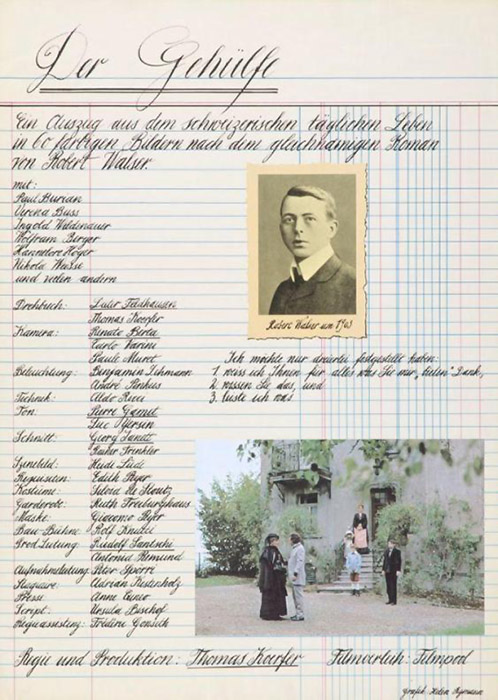 Der Gehülfe
Ein Auszug aus dem schweizerischen täglichen Leben
in 60 farbigen Bildern nach dem gleichnamigen Roman
von Robert Walser.
mit:
Paul Burian
Verena Buss
Ingold Wildenauer
Wolfram Berger
Hannelore Hoger
Nikola Weisse
und vielen andern
Robert Walser um 1903
Drehbuch: Dieter Feldhausen
Thomas Koerfer
Kamera: Renato Berta
Carlo Varini
Paule Muret
Beleuchtung: Benjamin Lehmann
André Pinkus
Technik: Aldo Ricci
Ton: Pierre Gamet
Luc Yersin
Schnitt: Georg Janett
Rainer Trinkler
Ich möchte nur dreierlei festgestellt haben:
1. weiss ich Ihnen für alles was Sie nur „wollen" Dank,
2. wissen Sie das, und
3. liste ich was
Szenebild: Heidi Lüdi
Requisiten: Edith Peier
Kostüme: Sylvia de Stoutz
Garderobe: Ruth Freiburghaus
Maske: Giacomo Peier
Bau-Bühne: Rolf Knutti
Prod. Leitung: Rudolf Santschi
Antonia Remund
Aufnahmeleitung: Peter Spoerri
Adrian Kestenholz
Presse: Anne Cuneo
Script: Ursula Bischof
Regieassistenz: Frédéric Gonseth
Regie und Produktion: Thomas Koerfer Filmverleih: Filmpool